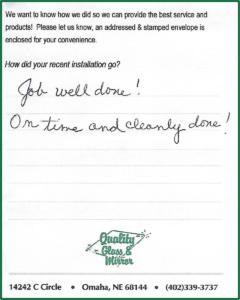 We want to know how we did so we can provide the best service and
products! Please let us know, an addressed & stamped envelope is
enclosed for your convenience.
How did your recent installation go?
Job well done!
On time and cleanly done!
Quality
Glass &
Mirror
14242 C Circle • Omaha, NE 68144 • (402)339-3737